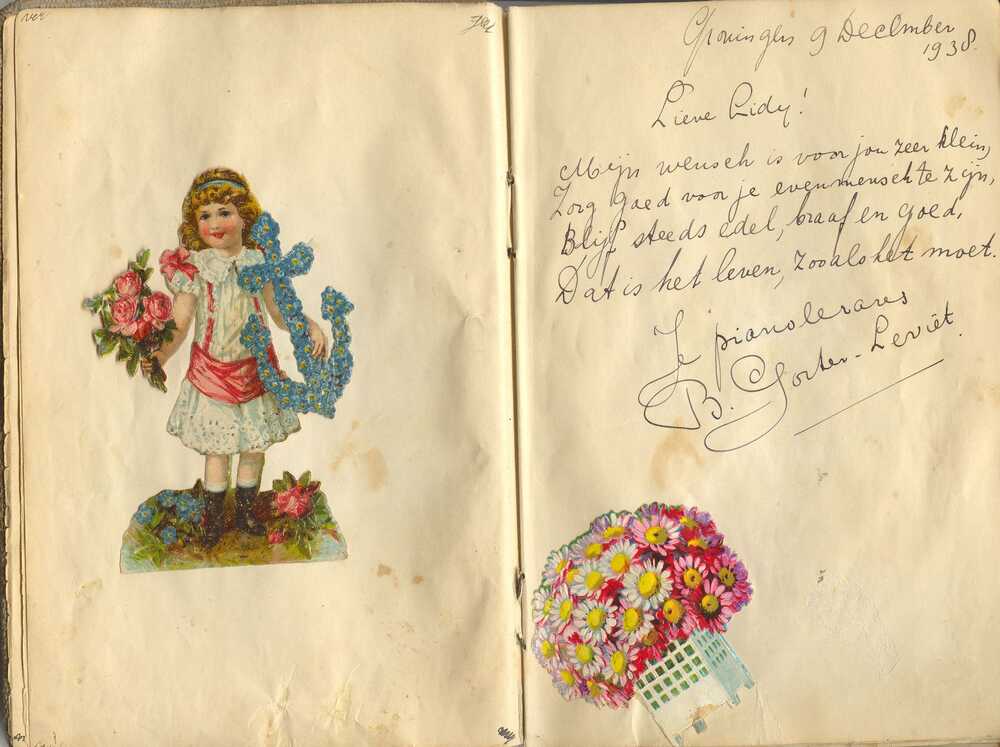 ver
Groningen 9 December
1938.
Lieve Lidy!
Mijn wensch is voor jou zeer klein,
Zorg goed voor je evenmensch te zijn,
Blijf steeds edel, braaf en goed,
Dat is het leven, zooals het moet.
Je pianolerares
B. Gorter-Leviet.